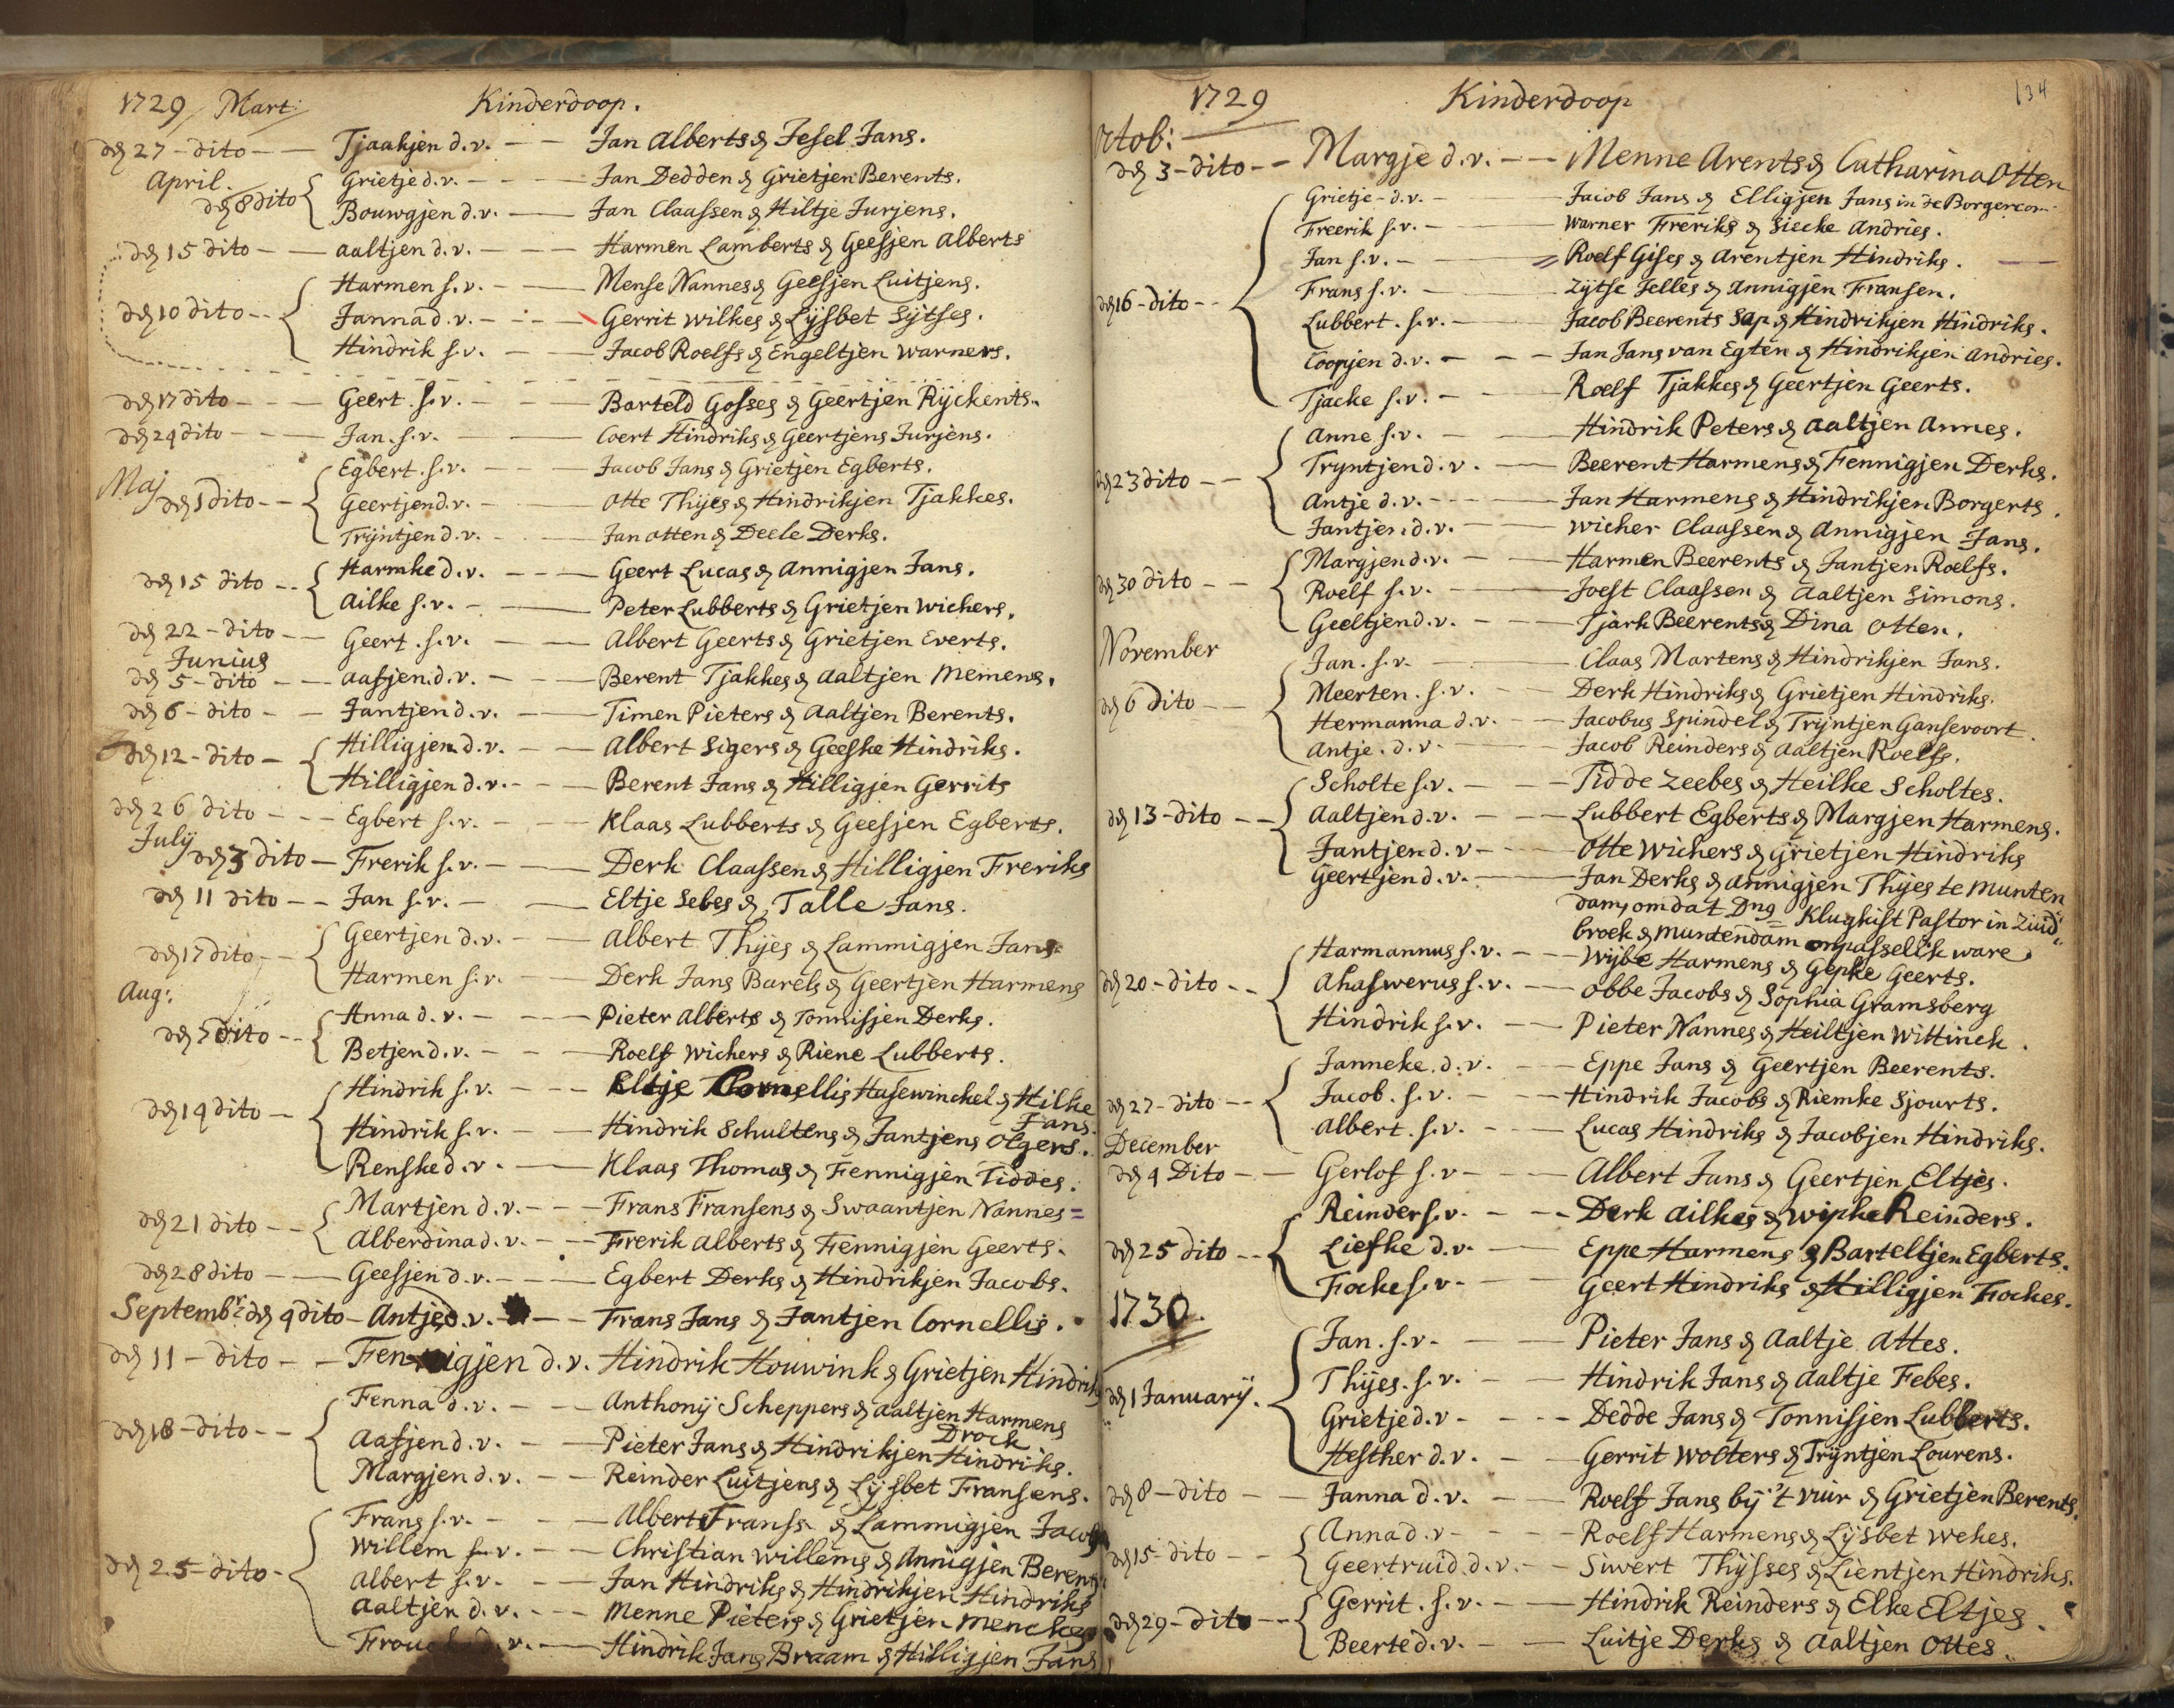 1729 / Mart: Kinderdoop.
dẽ 27 - dito - - Tjaakjen d.v. - - Jan Alberts & Jesel Jans.
April.
dẽ 8 dito Grietje d.v. - - Jan Dedden & Grietjen Berents.
Bouwgjen d.v. - Jan Claassen & Hiltje Jurjens.
dẽ 15 dito - - aaltjen d.v. - - Harmen Lamberts & Geesjen Alberts
Harmen s.v. - - Mense Nannes & Geesjen Luitjens.
dẽ 10 dito - - Janna d.v. - - Gerrit Wilkes & Lÿsbet Sÿtses.
Hindrik s.v. - - Jacob Roelfs & Engeltjen Warners.
dẽ 17 dito - - Geert s.v. - - Barteld Gosses & Geertjen Rÿckents.
dẽ 24 dito - - Jan. s.v. - Coert Hindriks & Geertjens Jurjens.
Egbert s.v. - - Jacob Jans & Grietjen Egberts.
Maj
dẽ 1 dito - - Geertjen d.v. - - Otte Thÿes & Hindrikjen Tjakkes.
Trÿntjen d.v. - - Jan Otten & Deele Derks.
dẽ 15 dito - - Harmke d.v. - - Geert Lucas & Annigjen Jans.
Ailke s.v. - - Peter Lubberts & Grietjen Wichers.
dẽ 22 - dito - - Geert s.v. - - Albert Geerts & Grietjen Everts.
Junius
dẽ 5 - dito - - aasjen d.v. - - Berent Tjakkes & Aaltjen Meinens.
dẽ 6 - dito - - Jantjen d.v. - Timen Pieters & Aaltjen Berents.
dẽ 12 - dito - Hilligjen d.v. - - Albert Sigers & Geeske Hindriks.
Hilligjen d.v. - - Berent Jans & Hilligjen Gerrits
dẽ 26 dito - - Egbert s.v. - - Klaas Lubberts & Geesjen Egberts.
Julÿ
dẽ 3 dito - Frerik s.v. - - Derk Claassen & Hilligjen Freriks
dẽ 11 dito - - Jan s.v. - - Eltje Sebes & Talle Jans.
dẽ 17 dito - - Geertjen d.v. - - Albert Thÿes & Lammigjen Jans
Harmen s.v. - - Derk Jans Barels & Geertjen Harmens
Aug:
dẽ 7 dito - - Anna d.v. - - Pieter Alberts & Tonnisjen Derks.
Betjen d.v. - - Roelf Wichers & Riene Lubberts.
Hindrik s.v. - - Eltje Cornellis Hasewinckel & Hilke
Jans.
dẽ 14 dito - Hindrik s.v. - - Hindrik Schultens & Jantjens Olgers.
Renske d.v. - Klaas Thomas & Fennigjen Tiddes.
dẽ 21 dito - - Martjen d.v. - - Frans Fransens & Swaantjen Nannes
Alberdina d.v. - - Frerik Alberts & Fennigjen Geerts.
dẽ 28 dito - - Geesjen d.v. - - Egbert Derks & Hindrikjen Jacobs.
Septembr: dẽ 4 dito - Antje d.v. - - Frans Jans & Jantjen Cornellis.
dẽ 11 - dito - - Fennigjen d.v. Hindrik Houwink & Grietjen Hindriks
Fenna d.v. - - Anthonÿ Scheppers & Aaltjen Harmens
Drock
dẽ 18 - dito - - Aasjen d.v. - - Pieter Jans & Hindrikjen Hindriks.
Margjen d.v. - - Reinder Luitjens & Lÿsbet Fransens.
Frans s.v. - - Albert Franss & Lammigjen Jacobs
Willem s.v. - - Christian Willems & Annigjen Berents
dẽ 25 - dito - Albert s.v. - - Jan Hindriks & Hindrikjen Hindriks
Aaltjen d.v. - - Menne Pieters & Grietjen Menckes
d.v. - Hindrik Jans Braam & Hilligjen Jans
1729 Kinderdoop 134
Octob:
dẽ 3 - dito - - Margje d.v. - - Menne Arents & Catharina Otten
Grietje - d.v. - Jacob Jans & Elligjen Jans in de Borgercom.
Freerik s.v. - Warner Freriks & Siecke Andries.
Jan s.v. - Roelf Gises & Arentjen Hindriks.
dẽ 16 - dito - - Frans s.v. - Zÿtse Jelles & Annigjen Fransen.
Lubbert. s.v. - Jacob Beerents Sap & Hindrikjen Hindriks.
Coopjen d.v. - - Jan Jans van Egten & Hindrikjen Andries.
Tjacke s.v. - Roelf Tjakkes & Geertjen Geerts.
Anne s.v. - Hindrik Peters & Aaltjen Annes.
dẽ 23 dito - - Tryntjen d.v. - Beerent Harmens & Fennigjen Derks.
Antje d.v. - - Jan Harmens & Hindrikjen Borgerts.
Jantjen d.v. - Wicher Claassen & Annigjen Jans.
Margjen d.v. - Harmen Beerents & Jantjen Roelfs.
dẽ 30 dito - - Roelf s.v. - Joest Claassen & Aaltjen Simons.
Geeltjen d.v. - - Tjark Beerents & Dina Otten.
November
Jan. s.v. - Claas Martens & Hindrikjen Jans.
dẽ 6 dito - - Meerten. s.v. - - Derk Hindriks & Grietjen Hindriks.
Hermanna d.v. - - Jacobus Spindel & Trÿntjen Gansevoort.
Antje. d.v. - Jacob Reinders & Aaltjen Roelfs.
Scholte s.v. - - Tidde Zeebes & Heilke Scholtes.
dẽ 13 - dito - - Aaltjen d.v. - - Lubbert Egberts & Margjen Harmens.
Jantjen d.v. - - Otte Wichers & Grietjen Hindriks
Geertjen d.v. - Jan Derks & Annigjen Thÿes te Munten
dam, omdat Dns Klugkist Pastor in Zuid
broek & Muntendam onpasselik ware.
Harmannus s.v. - - Wÿbe Harmens & Gepke Geerts.
dẽ 20 - dito - - Ahaswerus s.v. - Obbe Jacobs & Sophia Gramsberg
Hindrik s.v. - Pieter Nannes & Heiltjen Wittinck.
Janneke. d.v. - Eppe Jans & Geertjen Beerents.
dẽ 27 - dito - - Jacob. s.v. - - Hindrik Jacobs & Riemke Sjourts.
Albert. s.v. - - Lucas Hindriks & Jacobjen Hindriks.
December
dẽ 4 Dito - - Gerlof s.v. - - Albert Jans & Geertjen Eltjes.
Reinder s.v. - - Derk Ailkes & Wipke Reinders.
dẽ 25 dito - - Liefke d.v. - Eppe Harmens & Barteltjen Egberts.
Focke s.v. - Geert Hindriks & Hilligjen Fockes.
1730.
Jan. s.v. - Pieter Jans & Aaltje Attes.
dẽ 1 Januarÿ. Thÿes. s.v. - Hindrik Jans & Aaltje Febes.
Grietje d.v. - - Dedde Jans & Tonnisjen Lubberts.
Hesther d.v. - Gerrit Wolters & Trÿntjen Lourens.
dẽ 8 - dito - - Janna d.v. - Roelf Jans bÿ 't vuir & Grietjen Berents.
dẽ 15 - dito - - Anna d.v. - - Roelf Harmens & Lÿsbet Wekes.
Geertruid. d.v. - Siwert Thÿsses & Lientjen Hindriks.
dẽ 29 - dito - - Gerrit. s.v. - - Hindrik Reinders & Elke Eltjes.
Beerte d.v. - Luitje Derks & Aaltjen Ottes.